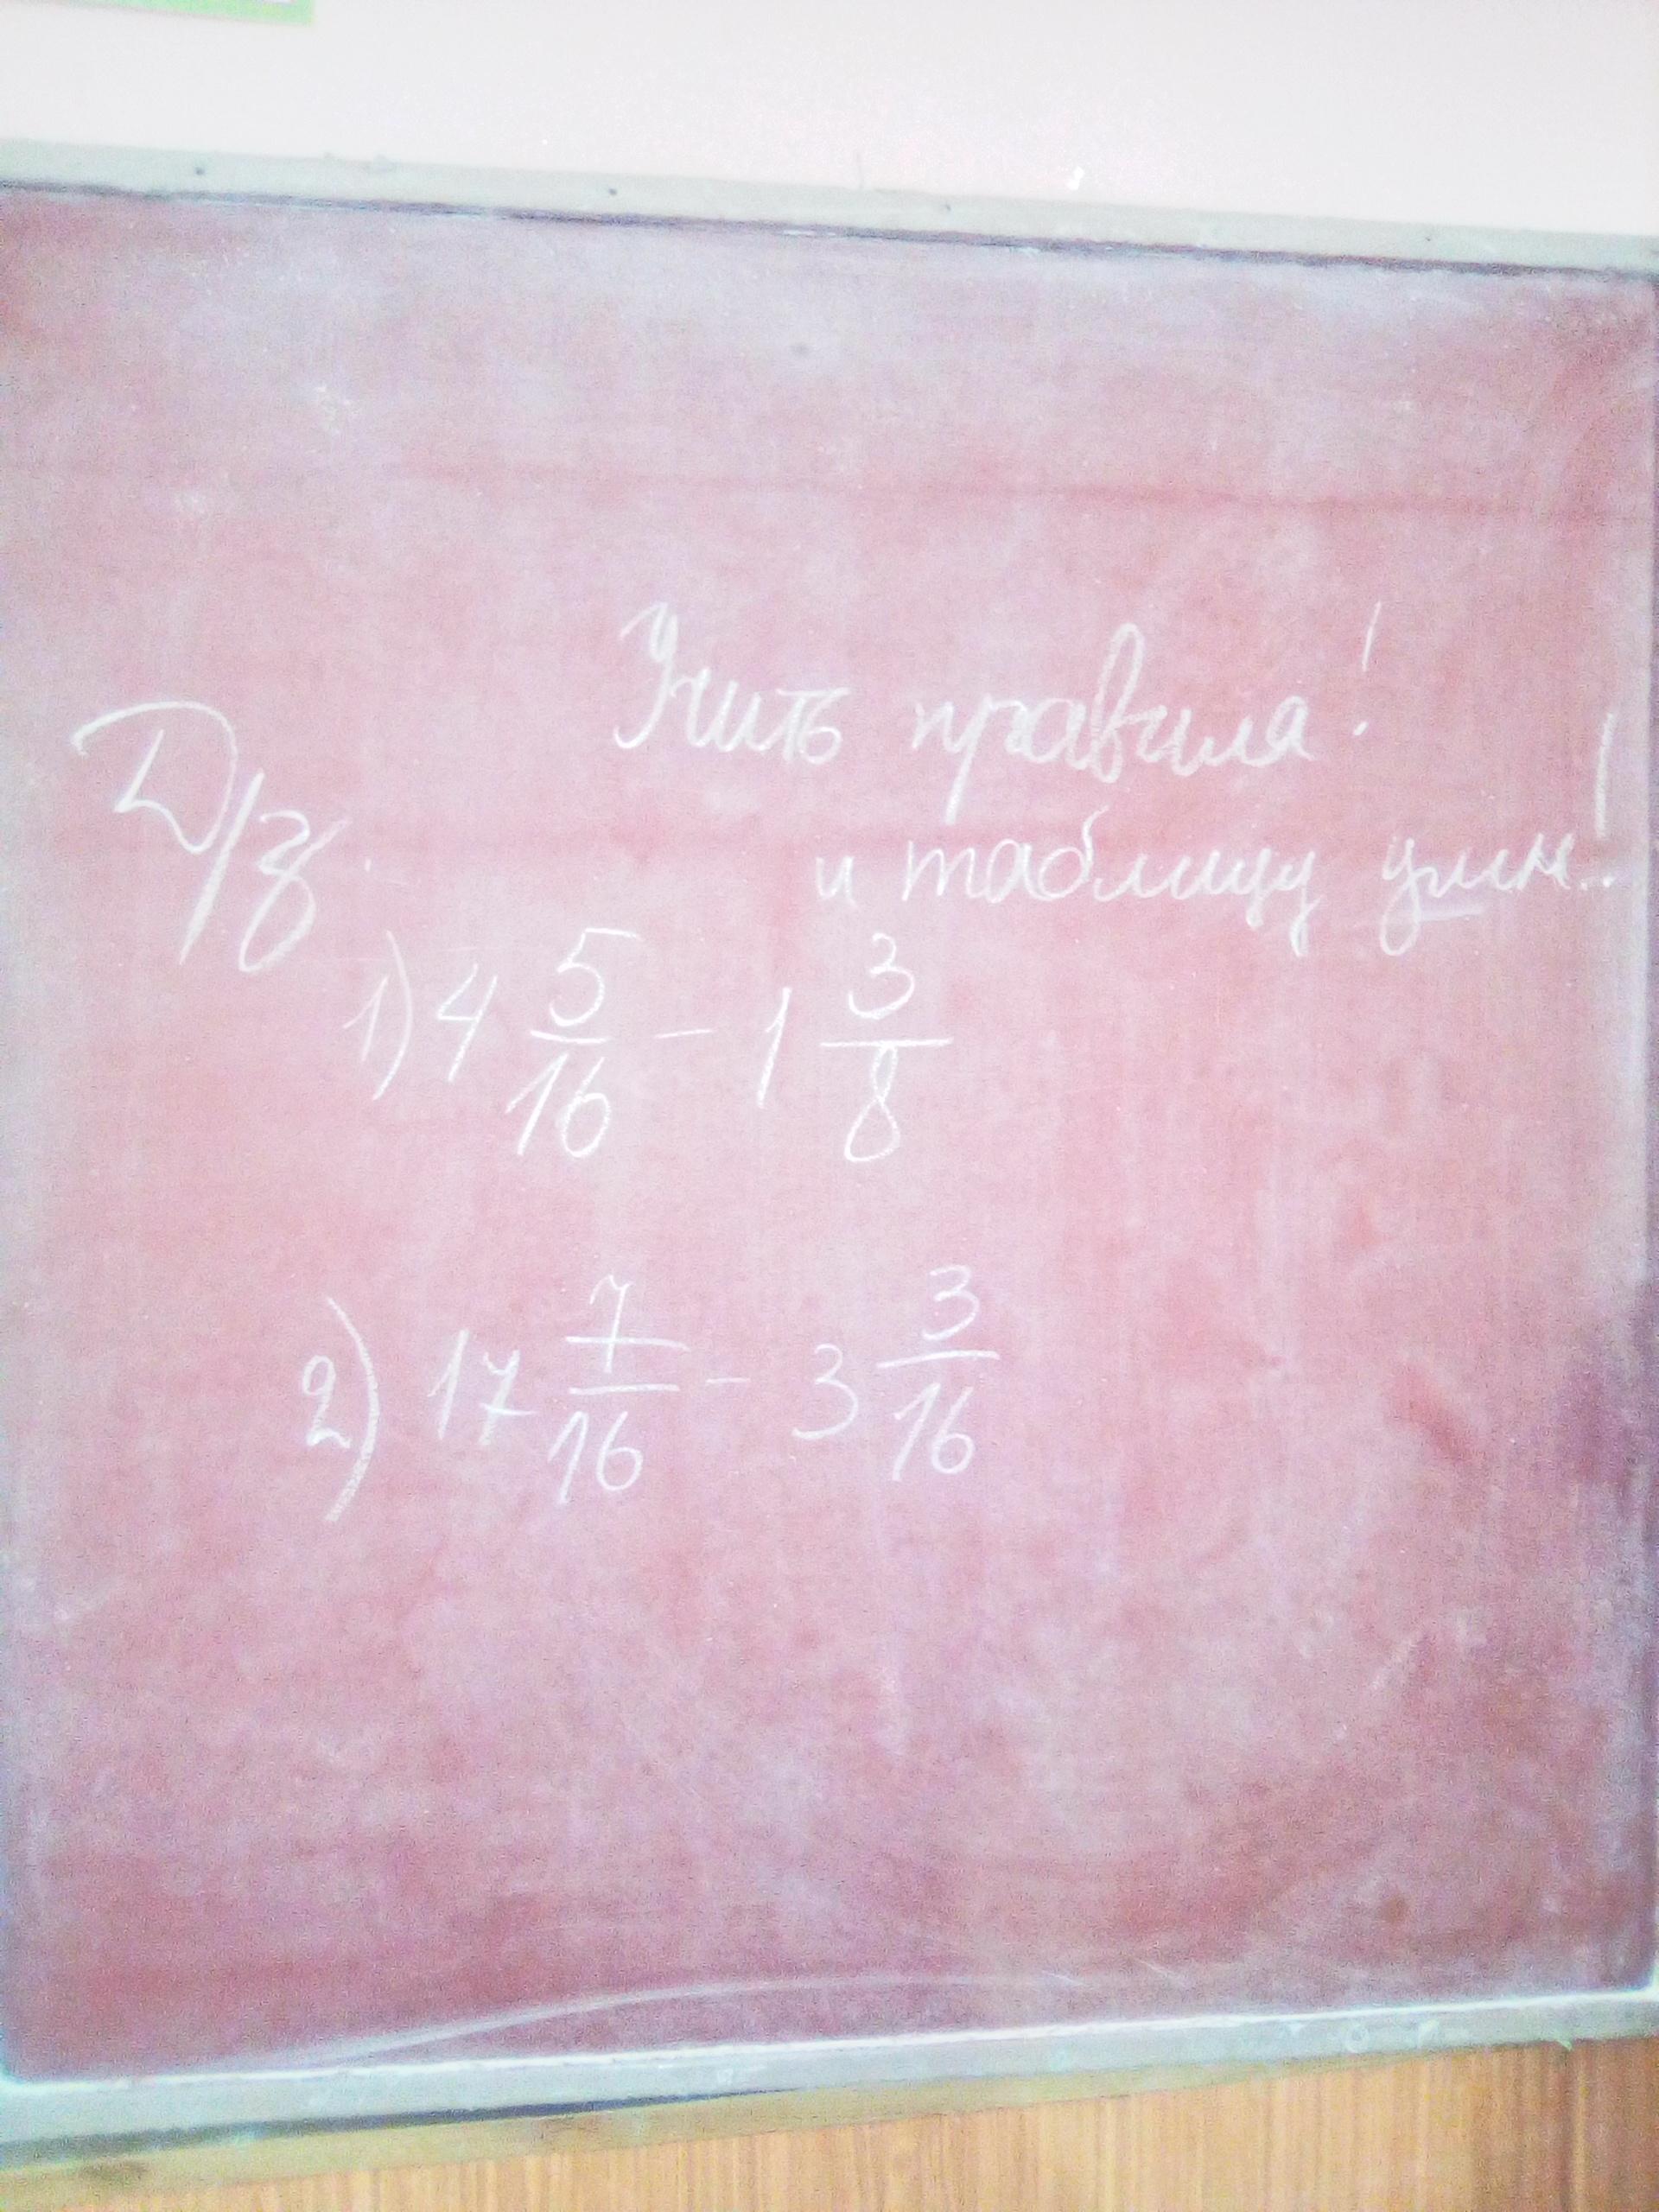 Учить правила!
Д/з.
и таблицу умн..!
1) 4 5/16 - 1 3/8
2) 17 7/16 - 3 3/16